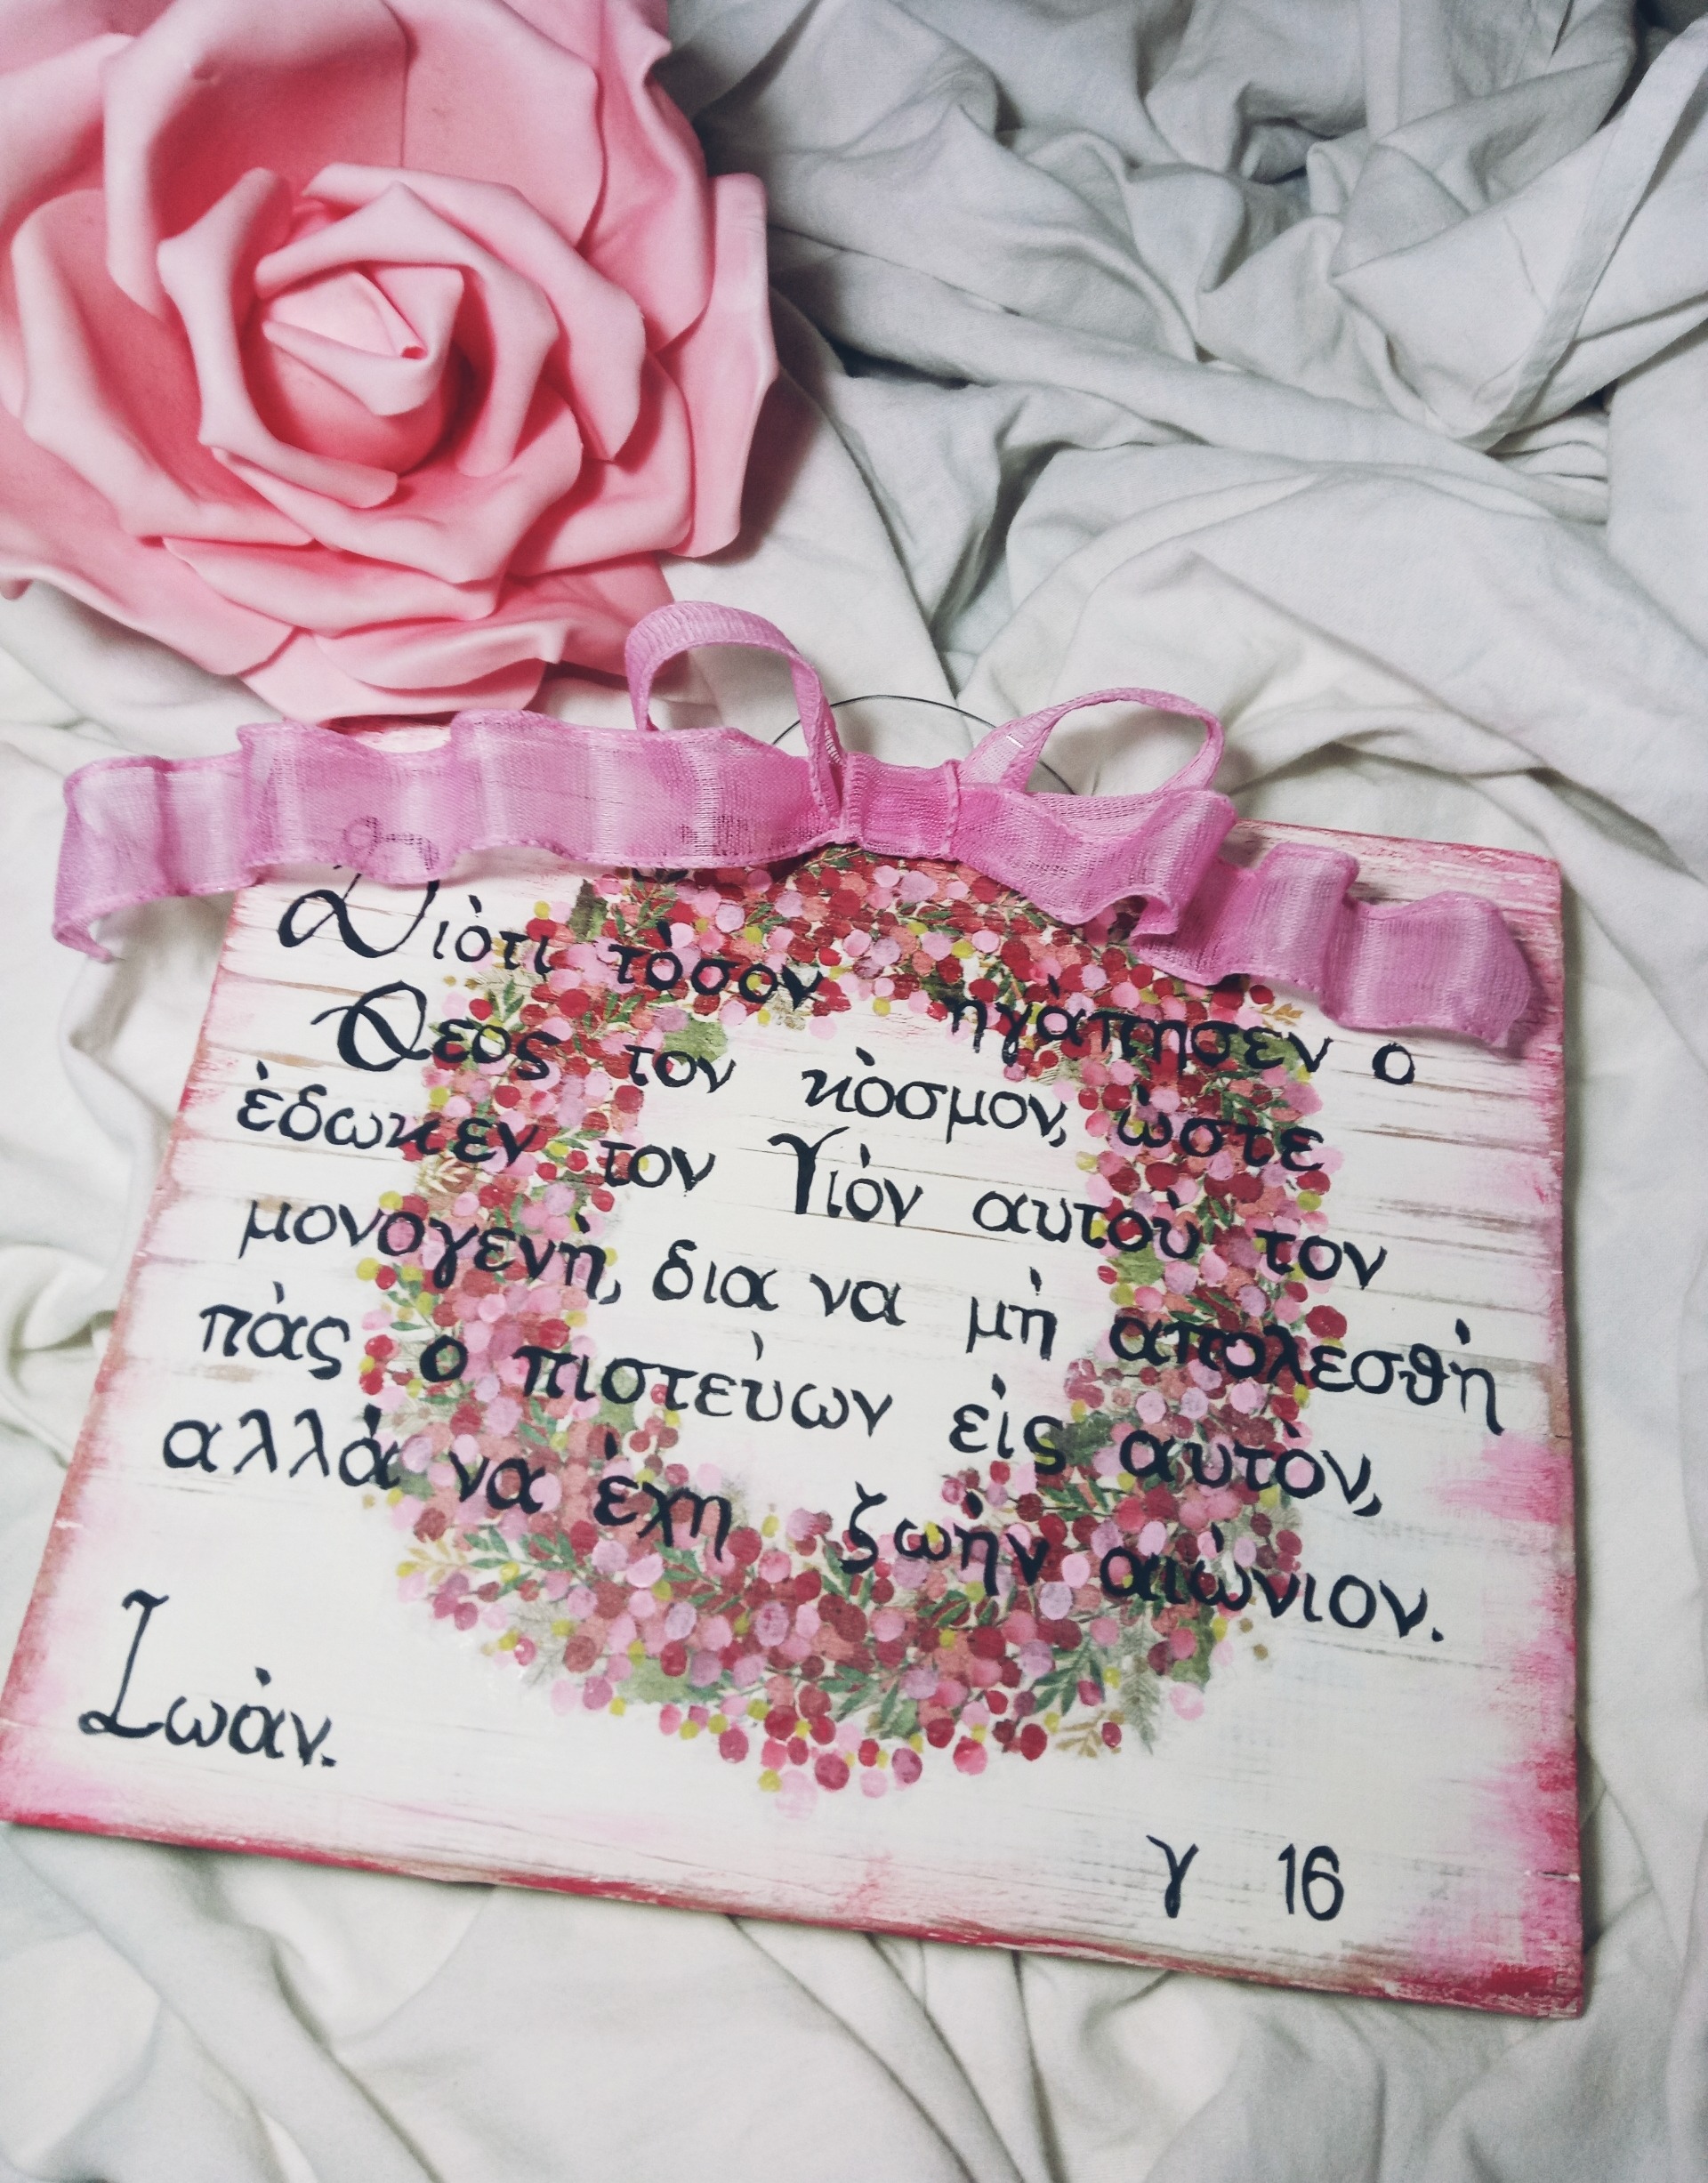 Διότι τόσον ηγάπησεν ο
Θεος τον κόσμον, ώστε
έδωκεν τον Υιόν αυτού τον
μονογενή, δια να μή απολεσθή
πάς ο πιστεύων είς αυτόν,
αλλά να έχη ζωήν αιώνιον.
Ιωάν.
γ 16